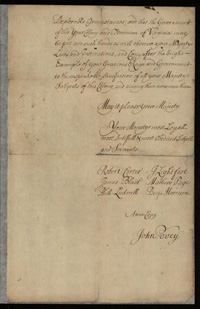 Deplorable Circumstances, and that the Government
of this Your Colony and Dominion of Virginia may
be put into such hands as will observe your Majestys
Laws and Instructions, and
Example of Your Gracious Reign and Government
to the unspeakable Satisfaction of all your Majestys
Subjects of this Colony and among them
May it please your Majesty
Your Majestys most Loyall
most Dutifull & most Obedient Subjects
and Servants
Robert Carter J Lightfoot
James Blair Matthew Page
Phill Ludwell Benja Harrison
A true Copy
John Povey